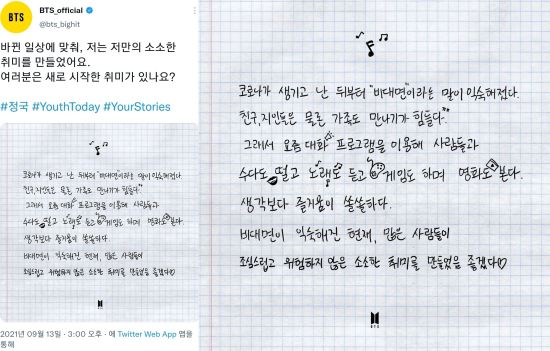 BTS
BTS_official
@bts_bighit
바뀐 일상에 맞춰, 저는 저만의 소소한
취미를 만들었어요.
여러분은 새로 시작한 취미가 있나요?
#정국 #YouthToday #YourStories
코로나가 생기고 난 뒤부터 "비대면"이라는 말이 익숙해졌다.
친구,지인들은 물론 가족도 만나기가 힘들다.
그래서 요즘 대화 프로그램을 이용해 사람들과
수다도 떨고 노래도 듣고 게임도 하며 영화도 본다.
생각보다 즐거움이 쏠쏠하다.
비대면이 익숙해진 현재, 많은 사람들이
조심스럽고 위험하지 않은 소소한 취미를 만들었을 좋겠다
BTS
2021년 09월 13일 · 3:00 오후 · 에 Twitter Web App 앱을
통해
코로나가 생기고 난 뒤부터 "비대면"이라는 말이 익숙해졌다.
친구,지인들은 물론 가족도 만나기가 힘들다.
그래서 요즘 대화 프로그램을 이용해 사람들과
수다도 떨고 노래도 듣고 게임도 하며 영화도 본다.
생각보다 즐거움이 쏠쏠하다.
비대면이 익숙해진 현재, 많은 사람들이
조심스럽고 위험하지 않은 소소한 취미를 만들었을 좋겠다♡
BTS